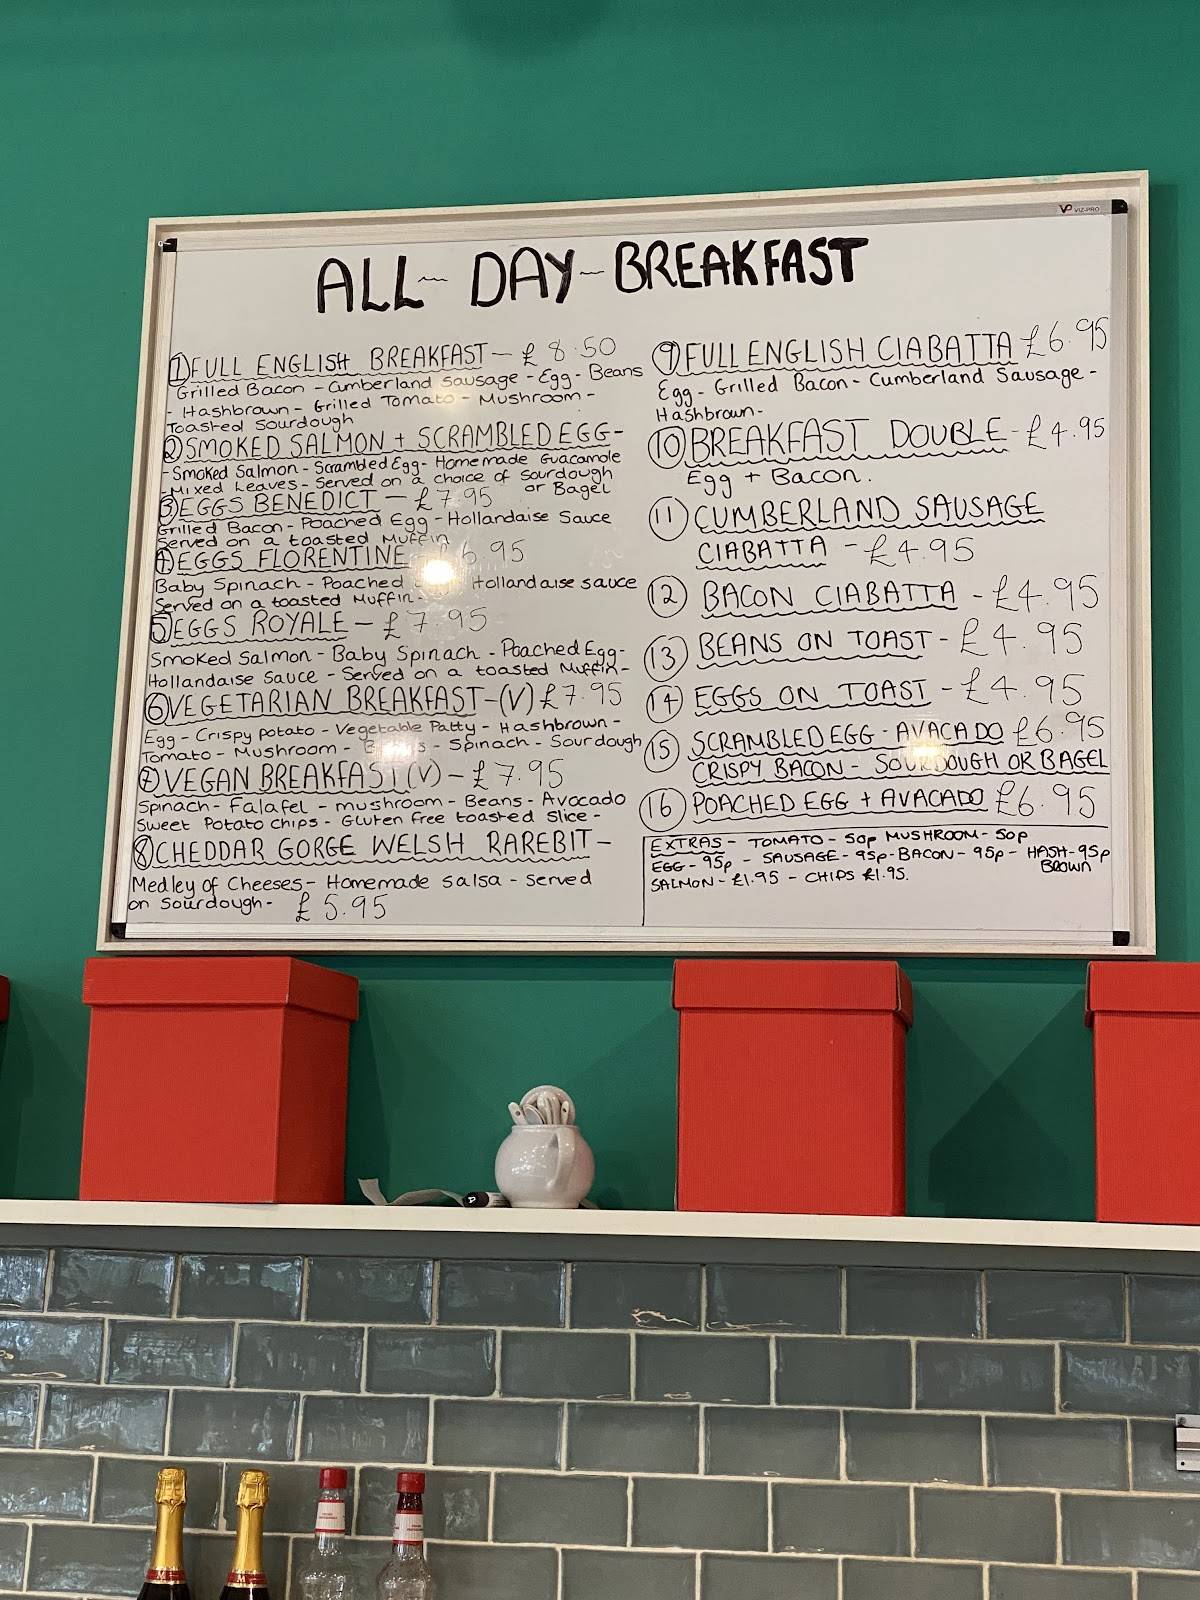 VIZ-PRO
ALL - DAY - BREAKFAST
1 FULL ENGLISH BREAKFAST - £8.50
Grilled Bacon - Cumberland Sausage - Egg - Beans
- Hashbrown - Grilled Tomato - Mushroom -
Toasted Sourdough
2 SMOKED SALMON + SCRAMBLED EGG -
- Smoked Salmon - Scrambled Egg - Homemade Guacamole
- Mixed Leaves - Served on a choice of Sourdough
or Bagel
3 EGGS BENEDICT - £7.95
Grilled Bacon - Poached Egg - Hollandaise Sauce
Served on a toasted Muffin
4 EGGS FLORENTINE - £6.95
Baby Spinach - Poached Hollandaise sauce
Served on a toasted Muffin -
5 EGGS ROYALE - £7.95
Smoked Salmon - Baby Spinach - Poached Egg -
Hollandaise Sauce - Served on a toasted Muffin -
6 VEGETARIAN BREAKFAST - (V) £7.95
Egg - Crispy potato - Vegetable Patty - Hashbrown -
Tomato - Mushroom - - Spinach - Sourdough
7 VEGAN BREAKFAST (V) - £7.95
Spinach - Falafel - mushroom - Beans - Avocado
Sweet Potato chips - Gluten free toasted slice -
8 CHEDDAR GORGE WELSH RAREBIT -
Medley of Cheeses - Homemade Salsa - Served
on Sourdough - £5.95
9 FULL ENGLISH CIABATTA £6.95
Egg - Grilled Bacon - Cumberland Sausage -
Hashbrown -
10 BREAKFAST DOUBLE - £4.95
Egg + Bacon.
11 CUMBERLAND SAUSAGE
CIABATTA - £4.95
12 BACON CIABATTA - £4.95
13 BEANS ON TOAST - £4.95
14 EGGS ON TOAST - £4.95
15 SCRAMBLED EGG - AVACADO £6.95
CRISPY BACON - SOURDOUGH OR BAGEL
16 POACHED EGG + AVACADO £6.95
EXTRAS - TOMATO - 50p MUSHROOM - 50p
EGG - 95p - SAUSAGE - 95p - BACON - 95p - HASH - 95p
BROWN
SALMON - £1.95 - CHIPS £1.95.